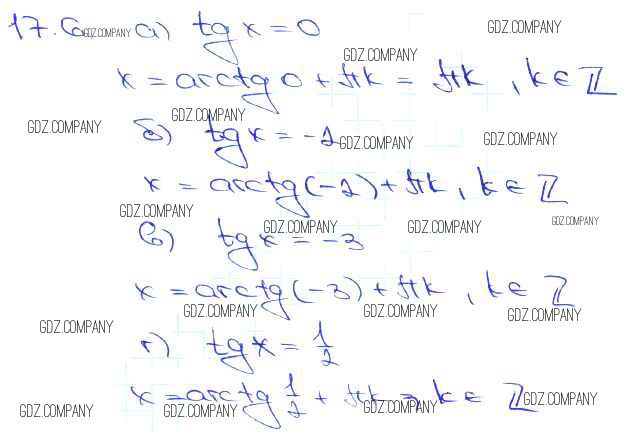 17.6 GDZ.COMPANY а) tg x = 0 GDZ.COMPANY
GDZ.COMPANY
x = arctg 0 + πk = πk , k ∈ ℤ
GDZ.COMPANY GDZ.COMPANY
б) tg x = -2 GDZ.COMPANY GDZ.COMPANY
x = arctg(-2) + πk , k ∈ ℤ
GDZ.COMPANY GDZ.COMPANY GDZ.COMPANY GDZ.COMPANY
в) tg x = -3
x = arctg(-3) + πk , k ∈ ℤ
GDZ.COMPANY GDZ.COMPANY GDZ.COMPANY
GDZ.COMPANY
г) tg x = 1/2
x = arctg 1/2 + πk , k ∈ ℤ GDZ.COMPANY
GDZ.COMPANY GDZ.COMPANY GDZ.COMPANY